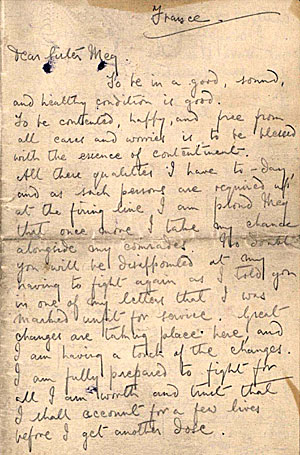 France.
Dear Sister Meg.
To be in a good, sound,
and healthy condition is good.
To be contented, happy, and free from
all cares and worries is to be blessed
with the essence of contentment.
All these qualities I have to-day,
and as such persons are required up
at the firing line I am proud Meg
that once more I take my chance
alongside my comrades. No doubt
you will be disappointed at my
having to fight again as I told you
in one of my letters that I was
marked unfit for service. Great
changes are taking place here, and
I am having a touch of the changes.
I am fully prepared to fight for
all I am worth and trust that
I shall account for a few lives
before I get another dose.